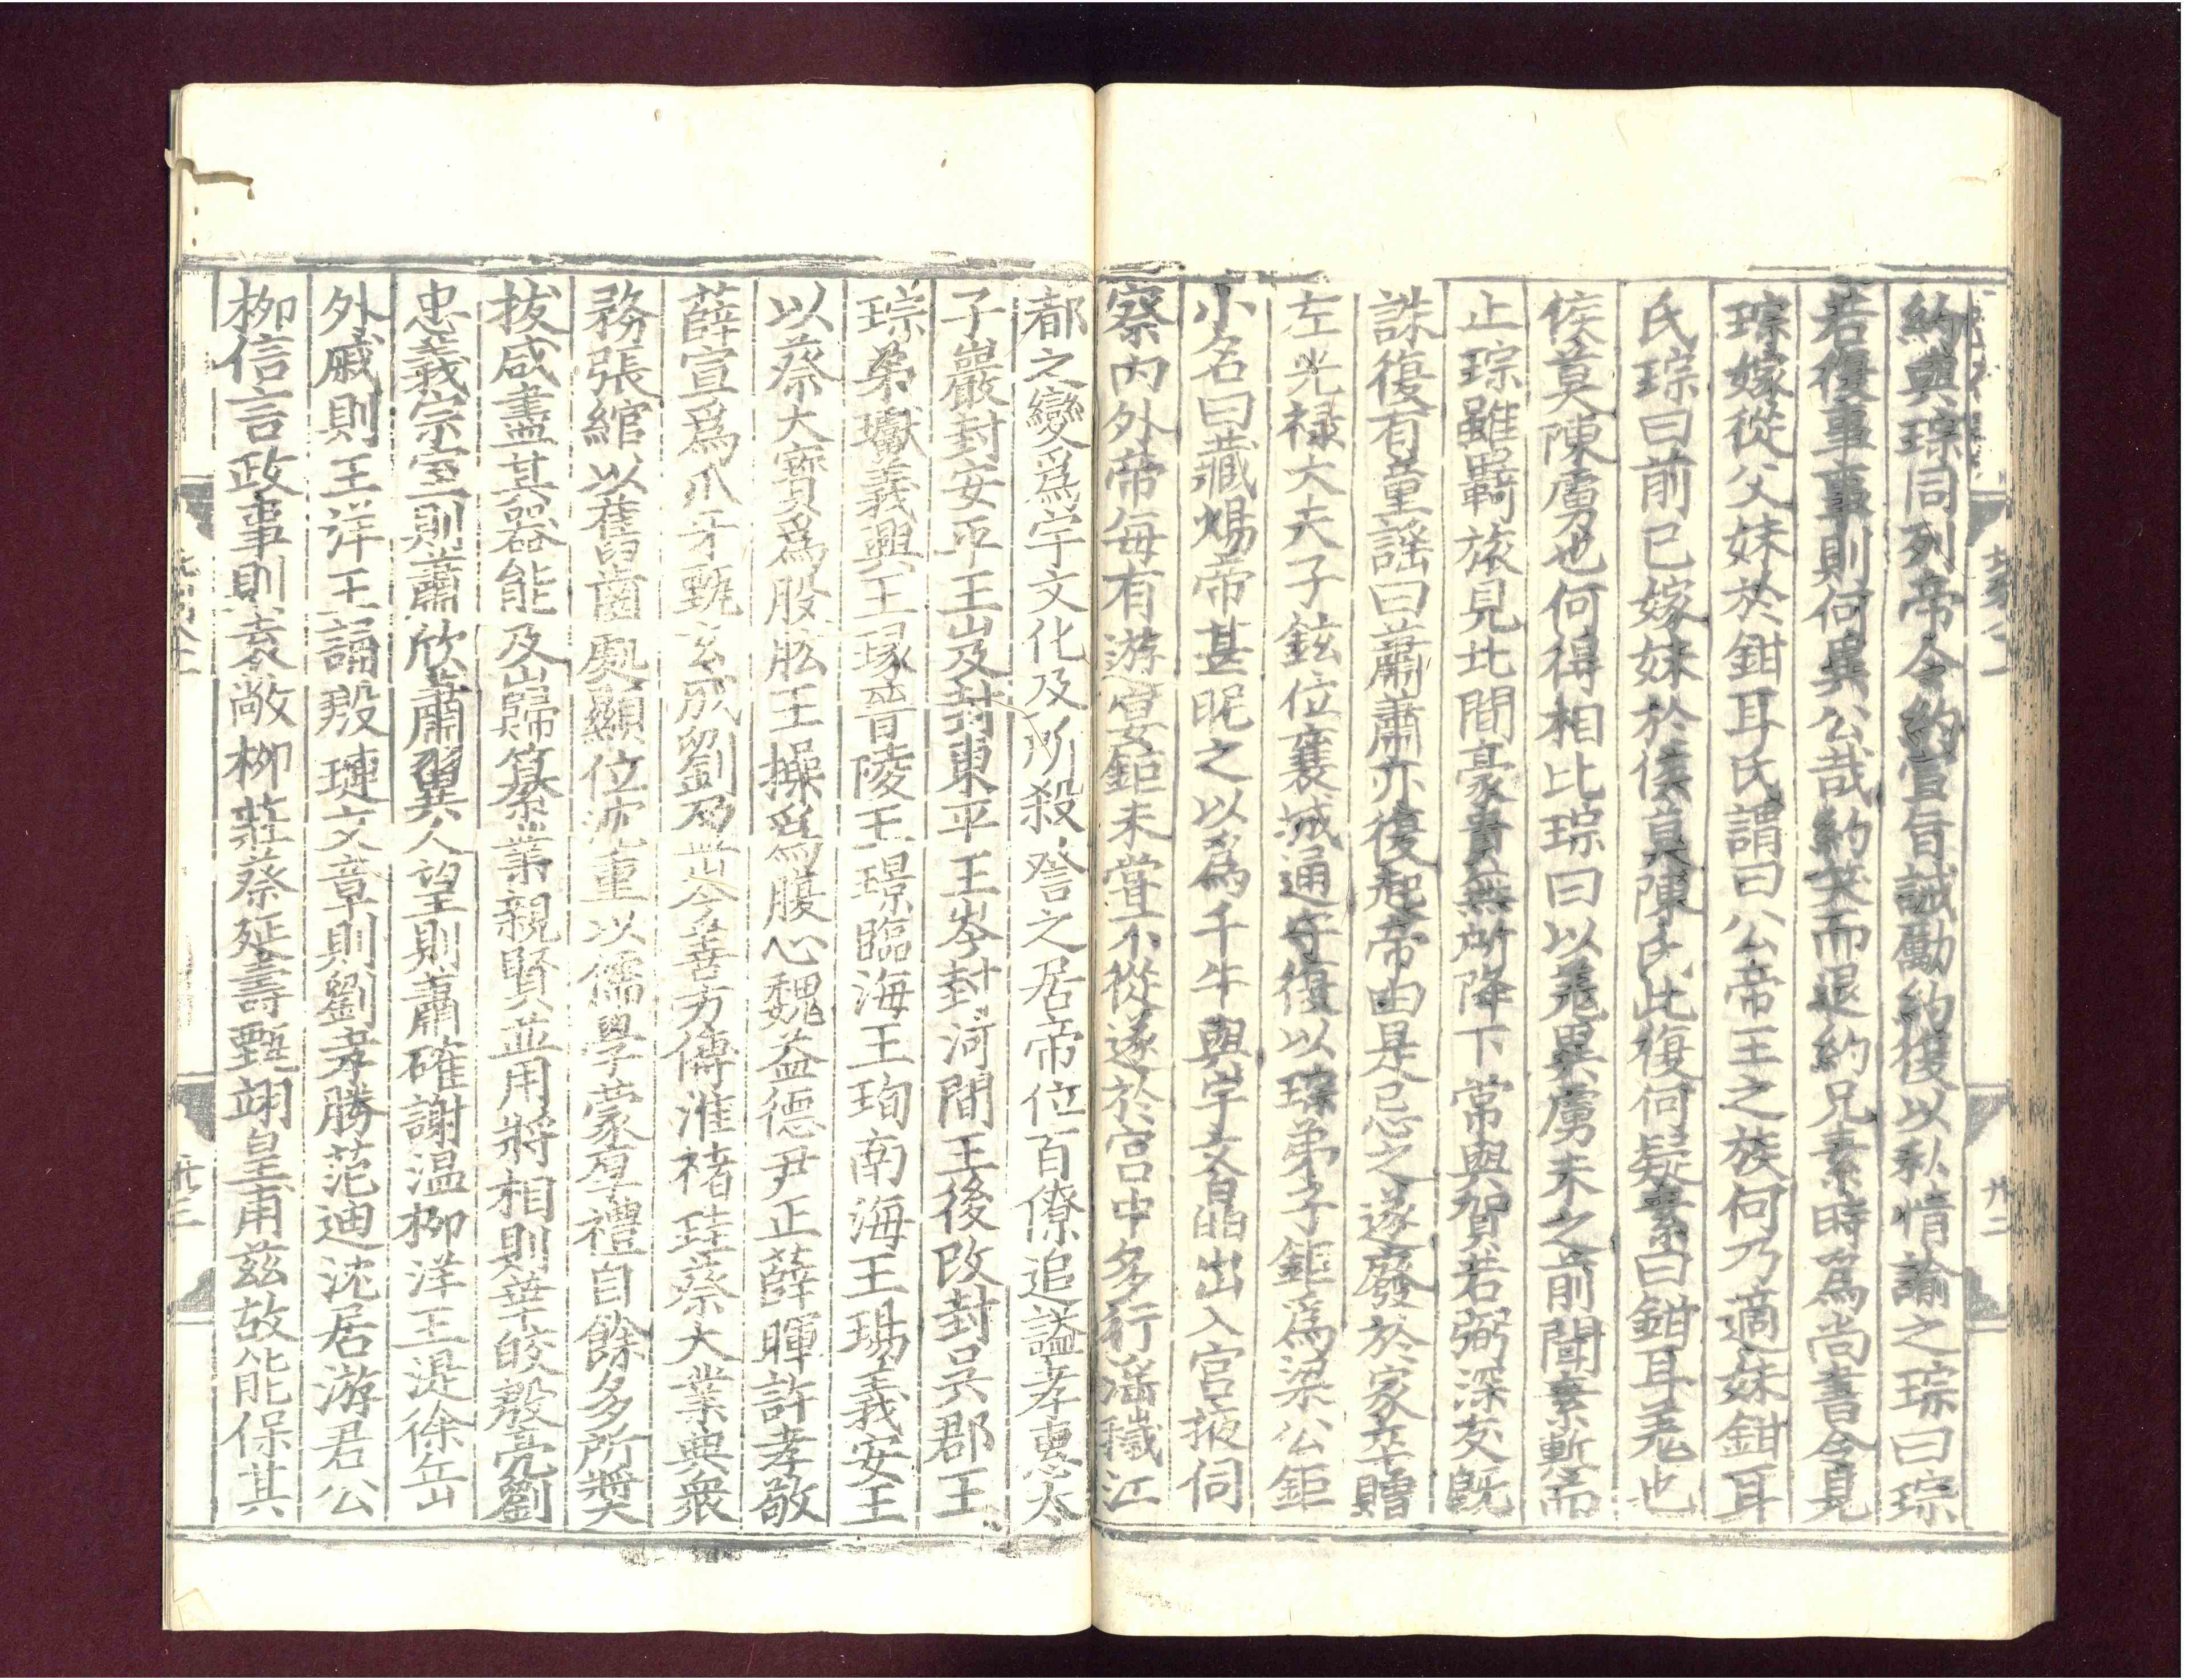 約與琮同列帝令約宣旨誡勵約復以私情諭之琮曰琮
若復事事則何異公哉約笑而退約兄素時爲尚書令見
琮嫁從父妹於鉗耳氏謂曰公帝王之族何乃適妹鉗耳
氏琮曰前已嫁妹於侯莫陳氏此復何疑素曰鉗耳羌也
侯莫陳虜也何得相比琮曰以羌異虜未之前聞素慙而
止琮雖羇旅見北間豪貴無所降下常與賀若弼深友既
誅復有童謡曰蕭蕭亦復起帝由是忌之遂廢於家卒贈
左光禄大夫子鉉位襄城通守復以琮弟子鉅爲梁公鉅
小名曰藏煬帝甚昵之以爲千牛與宇文皛出入宫掖伺
察内外帝每有游宴鉅未嘗不從遂於宫中多行滛穢江
都之變爲宇文化及所殺詧之居帝位百僚追謚孝惠太
子巖封安平王岌封東平王岑封河間王後改封吴郡王
琮弟瓛義興王瑑晉陵王璟臨海王珣南海王瑒義安王
以蔡大寶爲股肱王操爲腹心魏益德尹正薛暉許孝敬
薛宣爲爪牙甄玄成劉乃岺善方傅准褚珪蔡大業典衆
務張綰以舊齒處顯位沈重以儒學蒙厚禮自餘多所奬
拔咸盡其器能及巋纂業親賢並用將相則華皎殷亮劉
忠義宗室則蕭欣蕭翼人望則蕭確謝温栁洋王湜徐岳
外戚則王洋王誦殷璉文章則劉孝勝范迪沈君游君公
栁信言政事則袁敞栁莊蔡延壽甄翊皇甫兹故能保其
卅二
卅三